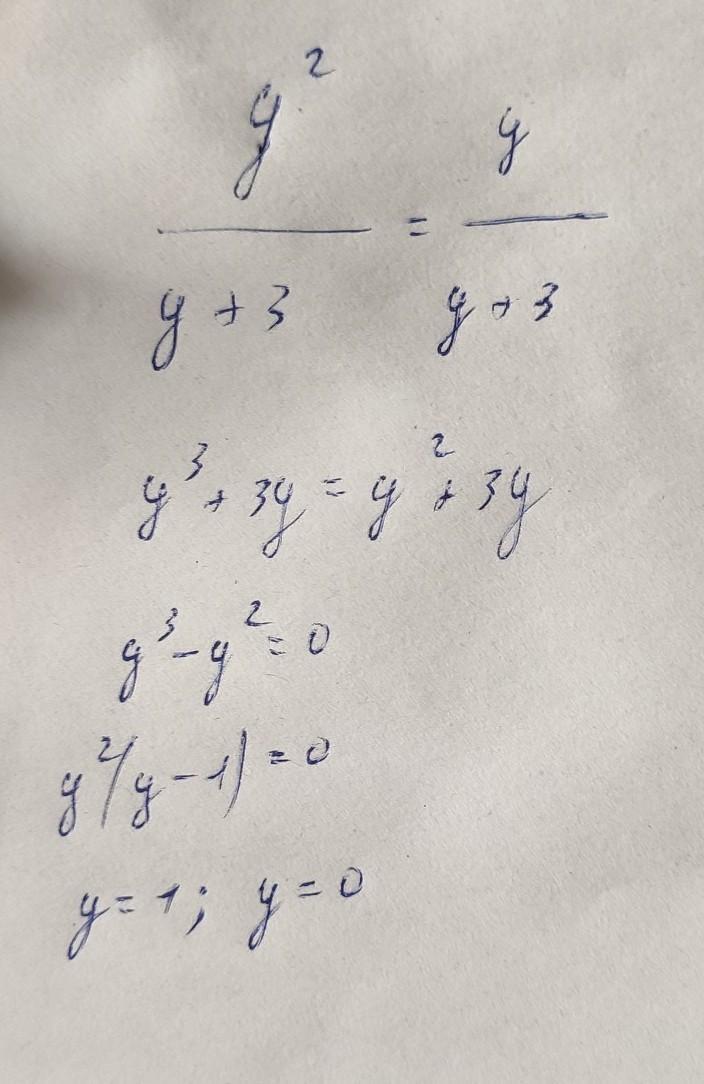 y² / y + 3 = y / y + 3
y³ + 3y = y² + 3y
y³ - y² = 0
y²(y - 1) = 0
y = 1; y = 0